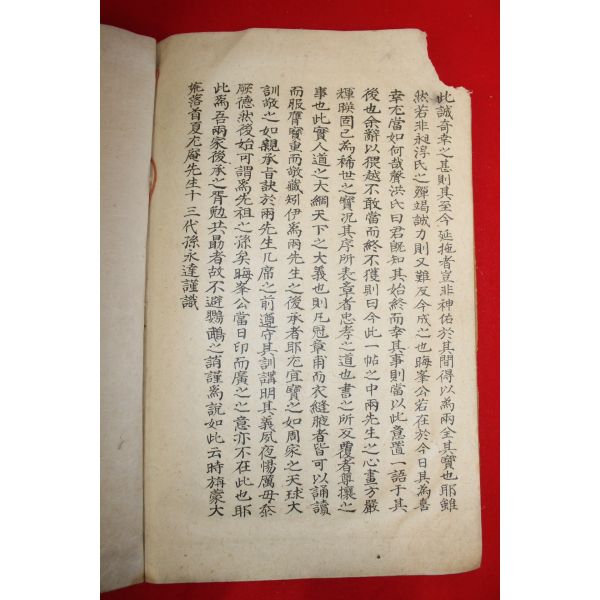 此誠奇幸之甚則其至今延拖者豈非神佑於其間得以爲兩全其寶也耶雖
然若非昶淳氏之殫竭誠力則又難及今成之也晦峯公若在於今日其爲喜
幸尤當如何哉聲洪氏曰君旣知其始終而幸其事則當以此意置一語于其
後也余辭以猥越不敢當而終不獲則曰今此一帖之中兩先生之心畫方嚴
輝暎固已爲稀世之寶況其序所表章者忠孝之道也書之所反覆者尊攘之
事也此實人道之大綱天下之大義也則凡冠章甫而衣縫腋者皆可以誦讀
而服膺寶重而敬藏矧伊爲兩先生之後承者耶尤宜寶之如周家之天球大
訓敬之如親承旨訣於兩先生几席之前遵守其訓講明其義夙夜惕厲毋忝
厥德然後始可謂爲先祖之孫矣晦峯公當日印而廣之之意亦不在此也耶
此爲吾兩家後承之胥勉共勗者故不避鸚鵡之誚謹爲說如此云時旃蒙大
荒落首夏尤庵先生十三代孫永達謹識